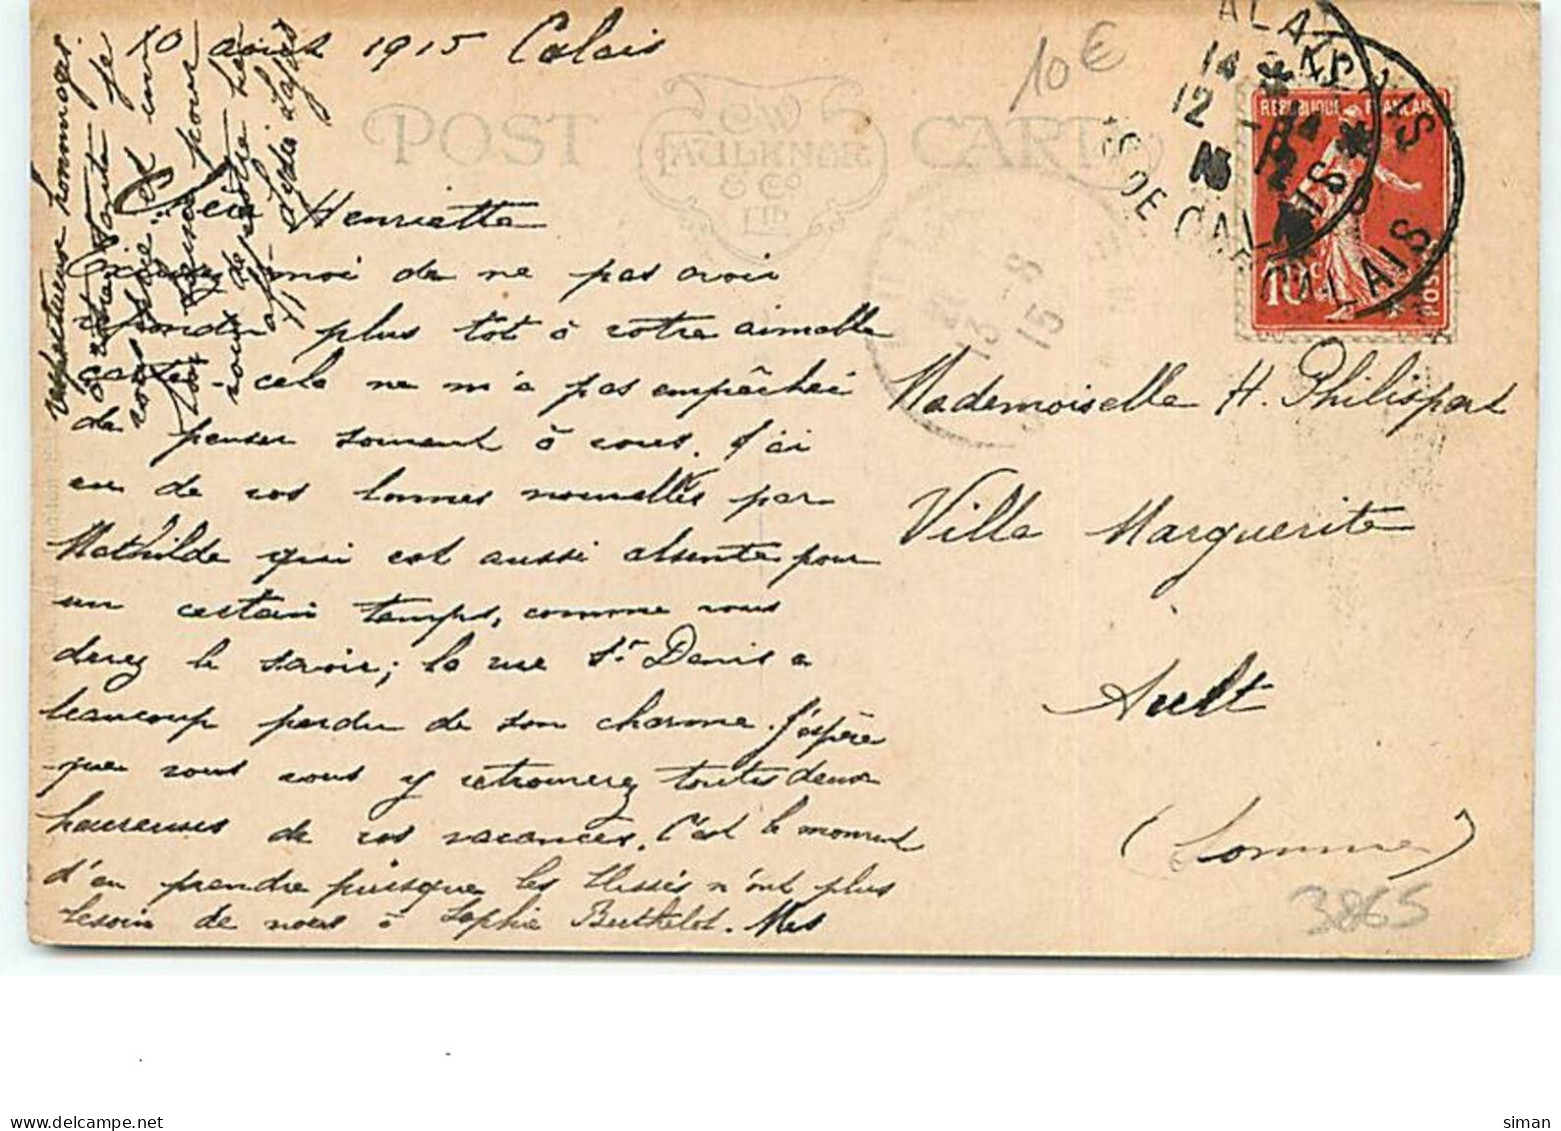 10 août 1915 Calais
10€
POST CARD
C.W.
FAULKNER
& Co
LTD
REPUBLIQUE FRANÇAISE
10c
POSTES
CALAIS
PAS DE CALAIS
13 -8
15
Chère Henriette
Excusez moi de ne pas avoir
répondu plus tôt à votre aimable
carte - cela ne m'a pas empêchée
de penser souvent à vous. J'ai
eu de vos bonnes nouvelles par
Mathilde qui est aussi absente pour
un certain temps, comme vous
devez le savoir; la rue St Denis a
beaucoup perdu de son charme. J'espère
que vous vous y retrouverez toutes deux
heureuses de vos vacances. C'est le moment
d'en prendre puisque les blessés n'ont plus
besoin de nous à Sophie Berthelot. Mes
respectueux hommages
à votre tante je
vous prie, et un
bon pour
vous de votre
Mademoiselle H. Philispart
Villa Marguerite
Ault
(Somme)
3865
siman